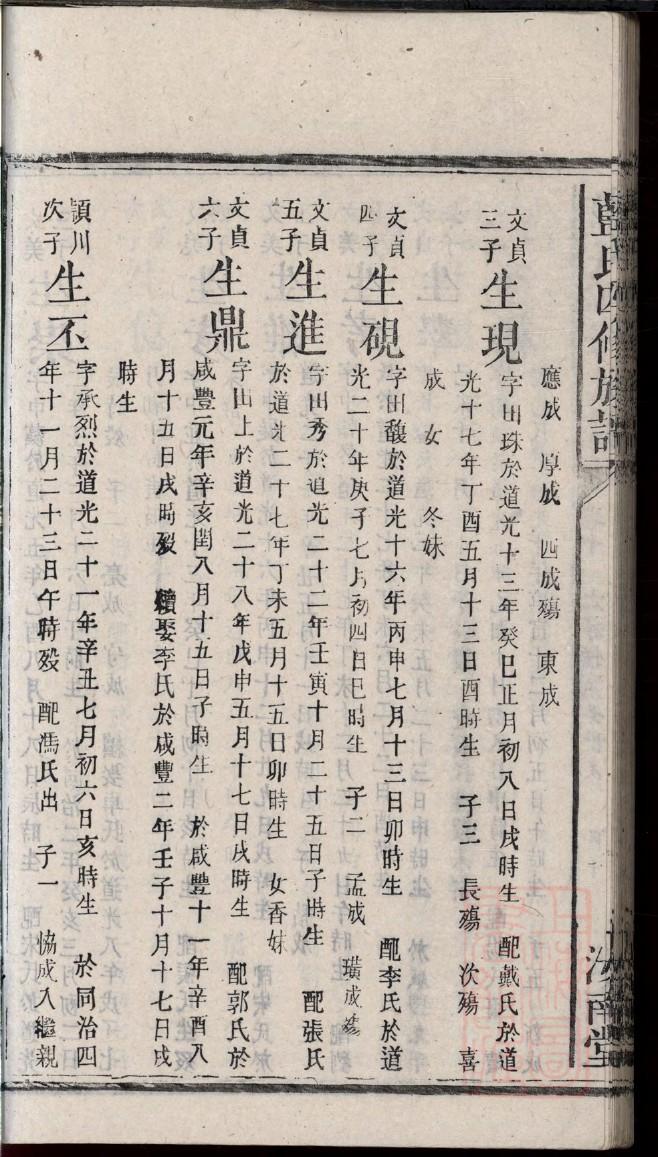 藍氏四修族譜
汝南堂
應成 厚成 四成殤 東成
文貞三子
生現
字田珠於道光十三年癸巳正月初八日戌時生 配戴氏於道
光十七年丁酉五月十三日酉時生 子三 長殤 次殤 喜
成 女 冬妹
文貞四子
生硯
字田馥於道光十六年丙申七月十三日卯時生 配李氏於道
光二十年庚子七月初四日巳時生 子二 孟成 璜成
文貞五子
生進
字田秀於道光二十二年壬寅十月二十五日子時生 配張氏
於道光二十七年丁未五月十五日卯時生 女香妹
文貞六子
生鼎
字田上於道光二十八年戊申五月十七日戌時生 配郭氏於
咸豐元年辛亥閏八月十五日子時生 於咸豐十一年辛酉八
月十五日戌時歿 續娶李氏於咸豐二年壬子十月十七日戌
時生
頴川次子
生丕
字承烈於道光二十一年辛丑七月初六日亥時生 於同治四
年十一月二十三日午時歿 配馮氏出 子一 恊成入繼親